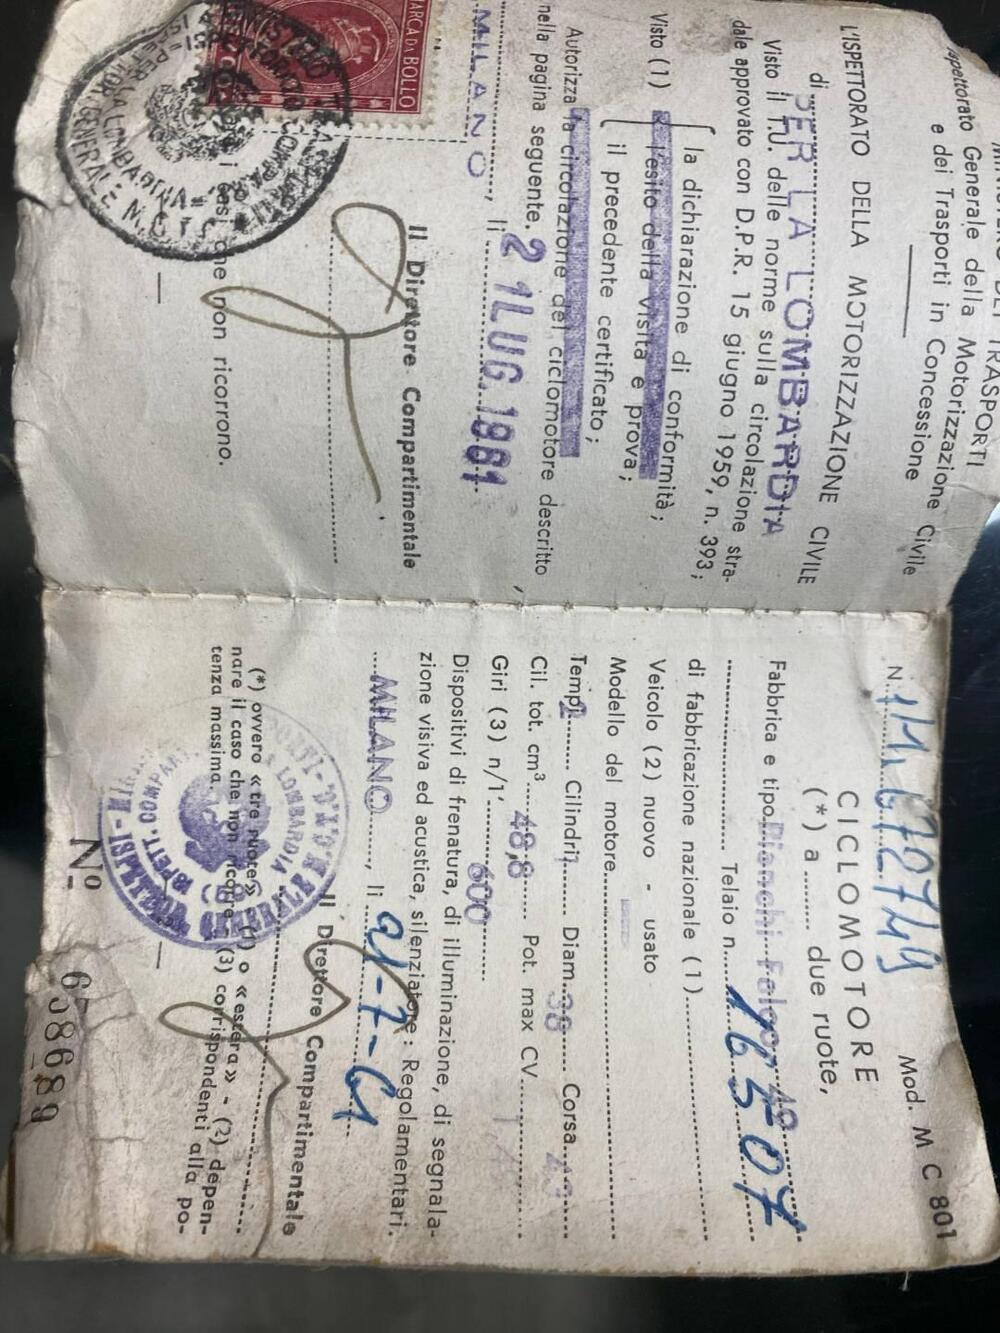 MINISTERO DEI TRASPORTI
Ispettorato Generale della Motorizzazione Civile
e dei Trasporti in Concessione
L'ISPETTORATO DELLA MOTORIZZAZIONE CIVILE
di PER LA LOMBARDIA
Visto il T.U. delle norme sulla circolazione stra-
dale approvato con D.P.R. 15 giugno 1959, n. 393;
Visto (1)
la dichiarazione di conformità;
l'esito della visita e prova;
il precedente certificato;
Autorizza la circolazione del ciclomotore descritto
nella pagina seguente.
MILANO, lì 21 LUG. 1961
Il Direttore Compartimentale
MARCA DA BOLLO
i casi che non ricorrono.
N.
Mod. M C 801
CICLOMOTORE
(*) a ........ due ruote,
Fabbrica e tipo Bianchi Falco 49
Telaio n. 16507
di fabbricazione nazionale (1)
Veicolo (2) nuovo - usato
Modello del motore
Tempi 2 Cilindri 1 Diam. 38 Corsa 43
Cil. tot. cm³ 48,8 Pot. max CV
Giri (3) n/1' 600
Dispositivi di frenatura, di illuminazione, di segnala-
zione visiva ed acustica, silenziatore: Regolamentari.
MILANO, lì 21-7-61
Il Direttore Compartimentale
(*) ovvero « tre ruote» (1) o «estera» - (2) depen-
nare il caso che non ricorre - (3) corrispondenti alla po-
tenza massima.
Nº 658689